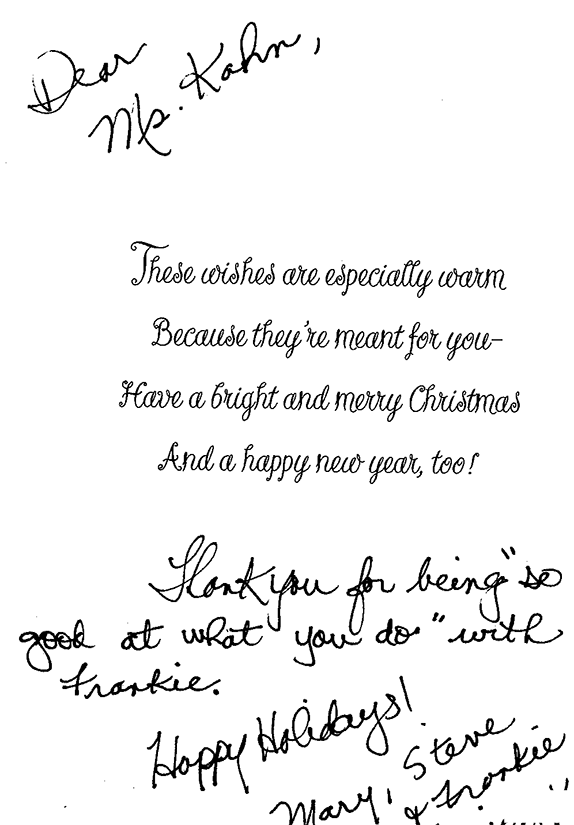 Dear
Ms. Kahn,
These wishes are especially warm
Because they're meant for you-
Have a bright and merry Christmas
And a happy new year, too!
Thank you for being "so
good at what you do" with
Frankie.
Happy Holidays!
Mary, Steve
& Frankie